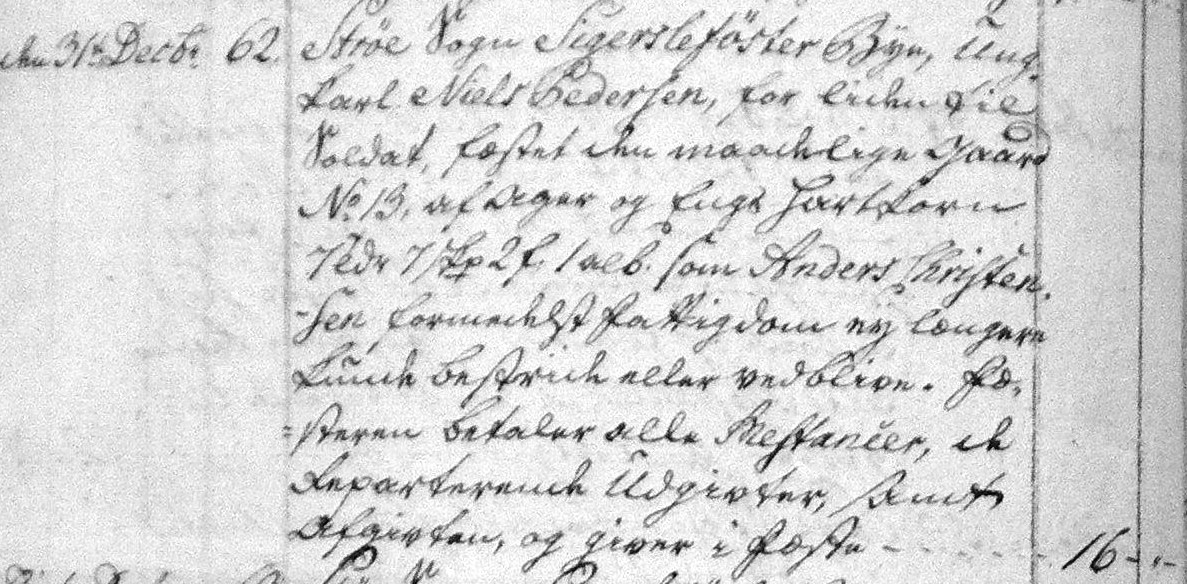 den 31te Decbr. 62. Strøe Sogn Sigersleføster Bÿe, Ung-
karl Niels Pedersen, for liden til
Soldat, fæstet den maadelige Gaard
No. 13, af Ager og Engs Hartkorn
7 Tdr 7 Skp 2 f. 1 alb. som Anders Christen-
-sen formedelst Fattigdom eÿ længere
kunde bestride eller vedblive. Fæ-
=steren betaler alle Restancer, de
Reparterende Udgivter, samt
Afgivten, og giver i Fæste - - - - - - 16 - „ -